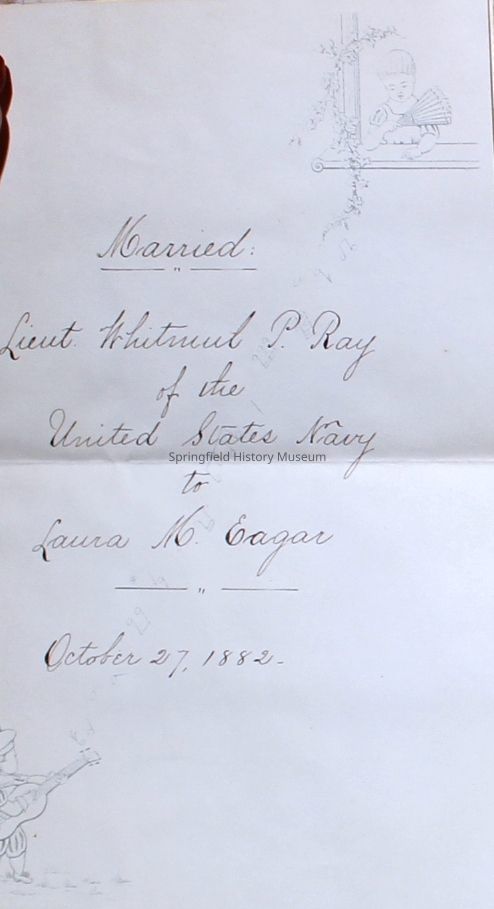 Married:
Lieut. Whitmul P. Ray
of the
United States Navy
Springfield History Museum
to
Laura M. Eagar
October 27, 1882-